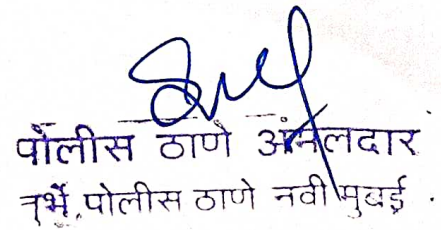 पोलीस ठाणे अंमलदार
तुर्भे, पोलीस ठाणे नवी मुंबई.